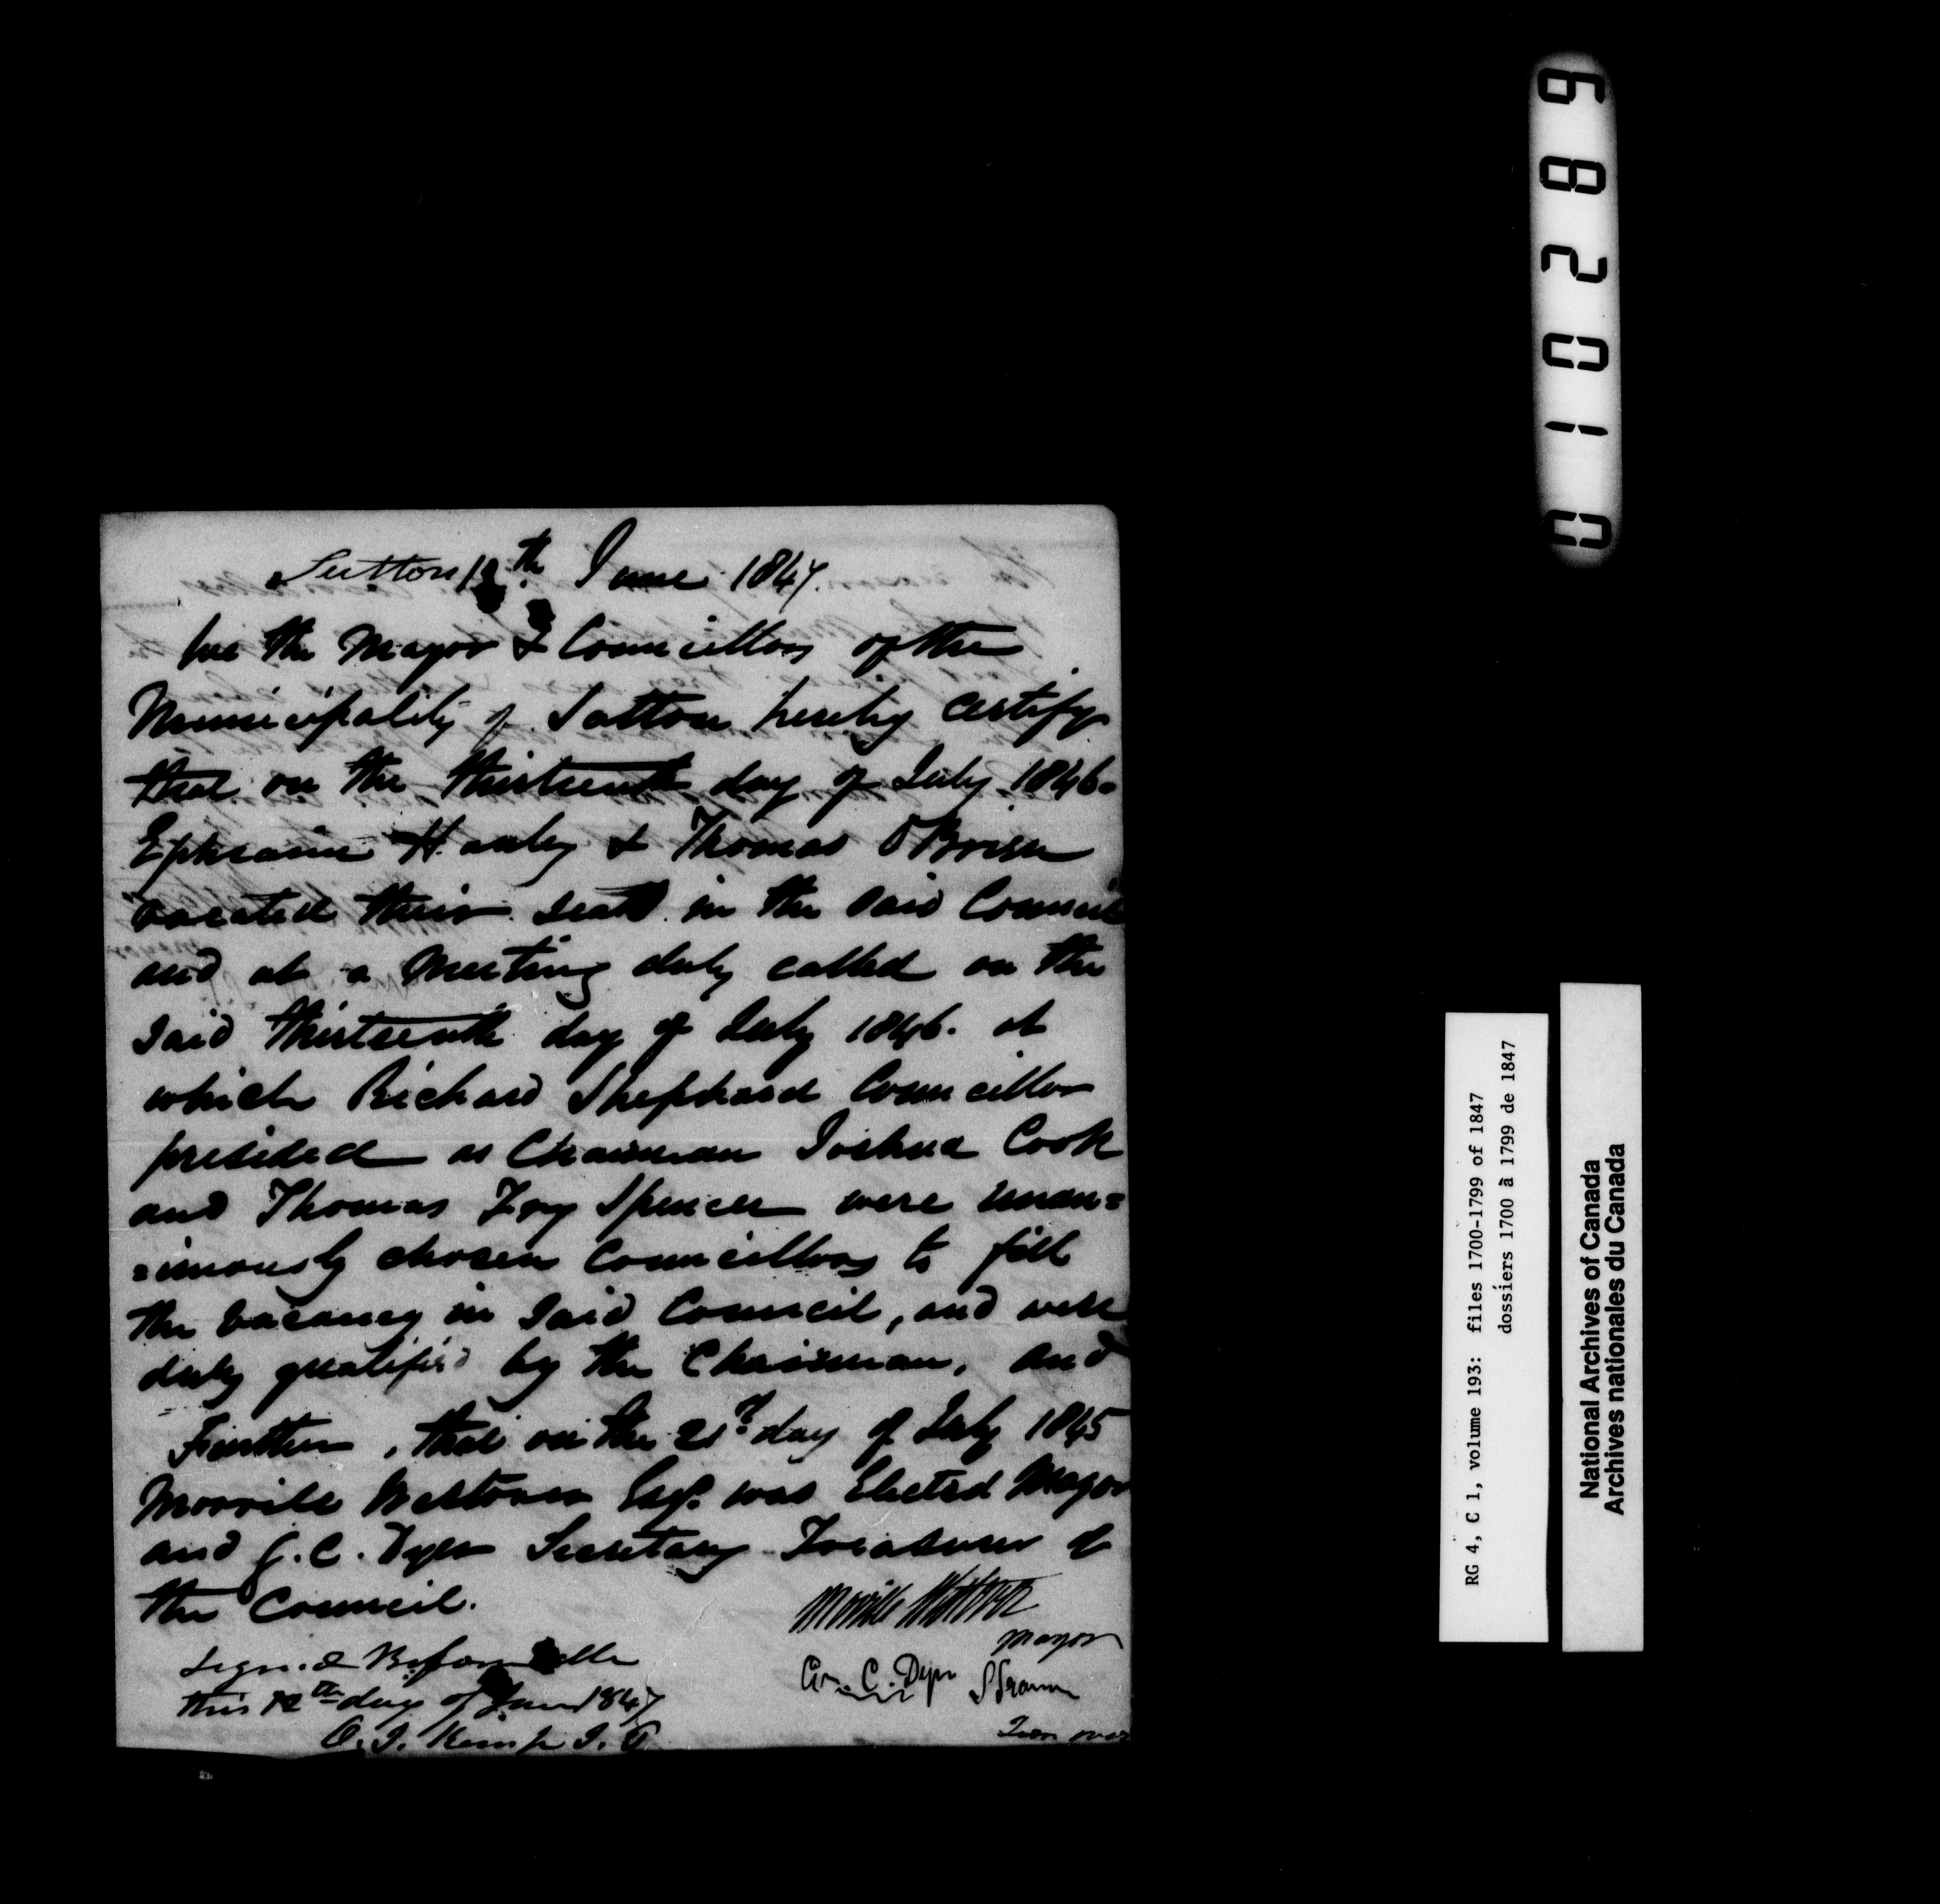 Sutton 12th June 1847.
We the Mayor & Councillors of the
Municipality of Sutton hereby certify
that on the thirteenth day of July 1846.
Ephraim Hanley & Thomas O'Brien
vacated their seats in the said Council
and at a Meeting duly called on the
said thirteenth day of July 1846. at
which Richard Shephard Councillor
presided as Chairman Joshua Cook
and Thomas Foy Spencer were unan=
=imously chosen Councillors to fill
the vacancy in said Council, and were
duly qualified by the Chairman, and
Further, that on the 21st day of July 1845
Morrile Westover Esqr. was Elected Mayor
and G.C. Dyer Secretary Treasurer of
the Council.
Morrile Westover
Mayor
Signed Before Me
this 12th day of June 1847
G. C. Dyer
Turn over
018289
RG 4, C 1, volume 193: files 1700-1799 of 1847
dossiers 1700 à 1799 de 1847
National Archives of Canada
Archives nationales du Canada